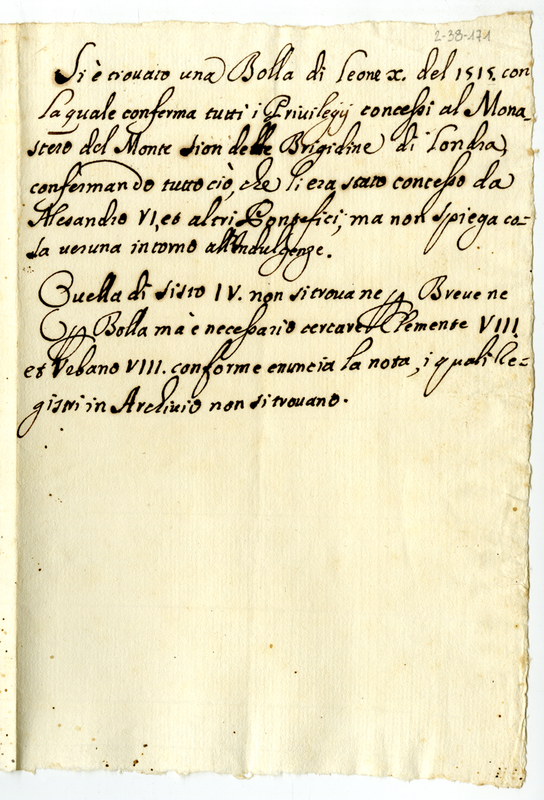 2-38-171
Si è trovato una Bolla di Leone x. del 1515. con
la quale conferma tutti i Privilegij concessi al Mona-
stero del Monte sion delle Brigidine di Londra,
confermando tutto ciò, che li era stato concesso da
Alesandro VI, et altri Pontefici, ma non spiega co-
sa veruna intorno all'Indulgenze.
Quella di sisto IV. non si trova ne Breve ne
Bolla mà è necessario cercare Clemente VIII
et Urbano VIII. conforme enuncia la nota, i quali Re-
gistri in Archivio non si trovano.